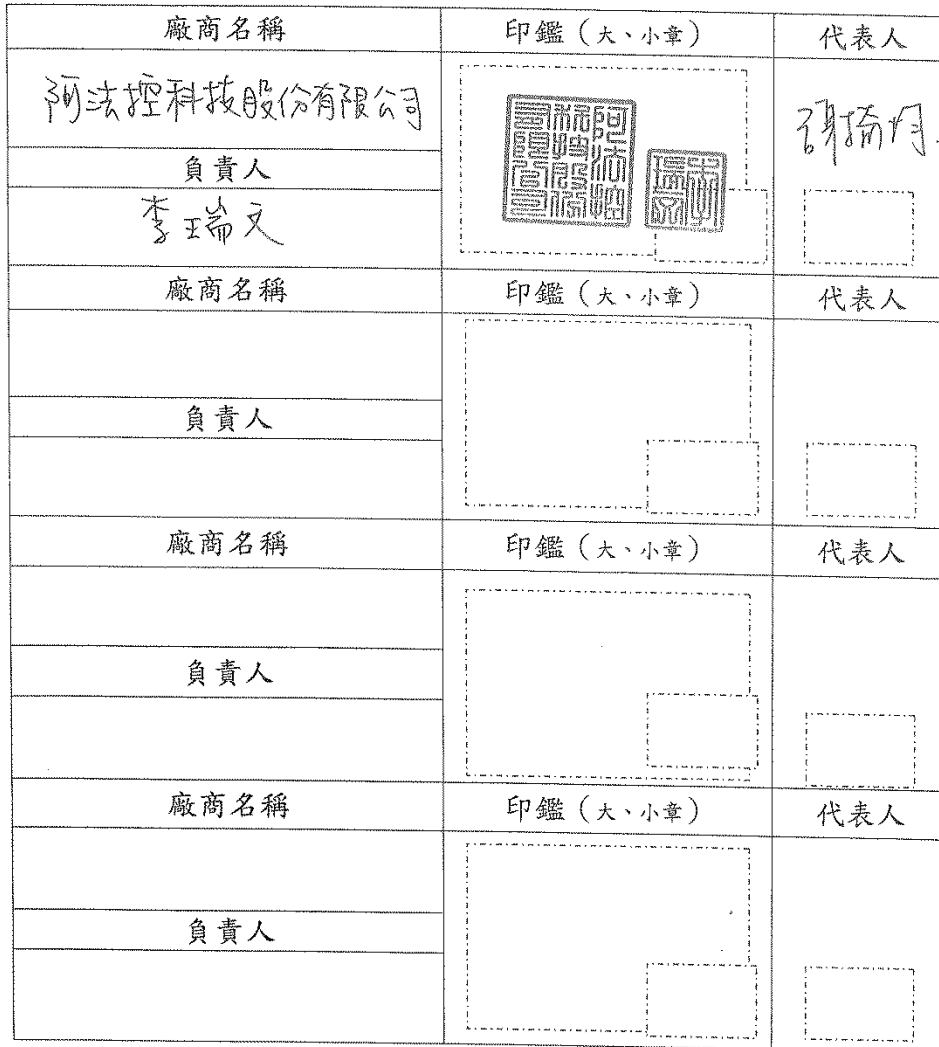 廠商名稱 印鑑（大、小章） 代表人
阿法控科技股份有限公司
阿法控科技股份有限公司
李瑞文
負責人
李瑞文
廠商名稱 印鑑（大、小章） 代表人
負責人
廠商名稱 印鑑（大、小章） 代表人
負責人
廠商名稱 印鑑（大、小章） 代表人
負責人